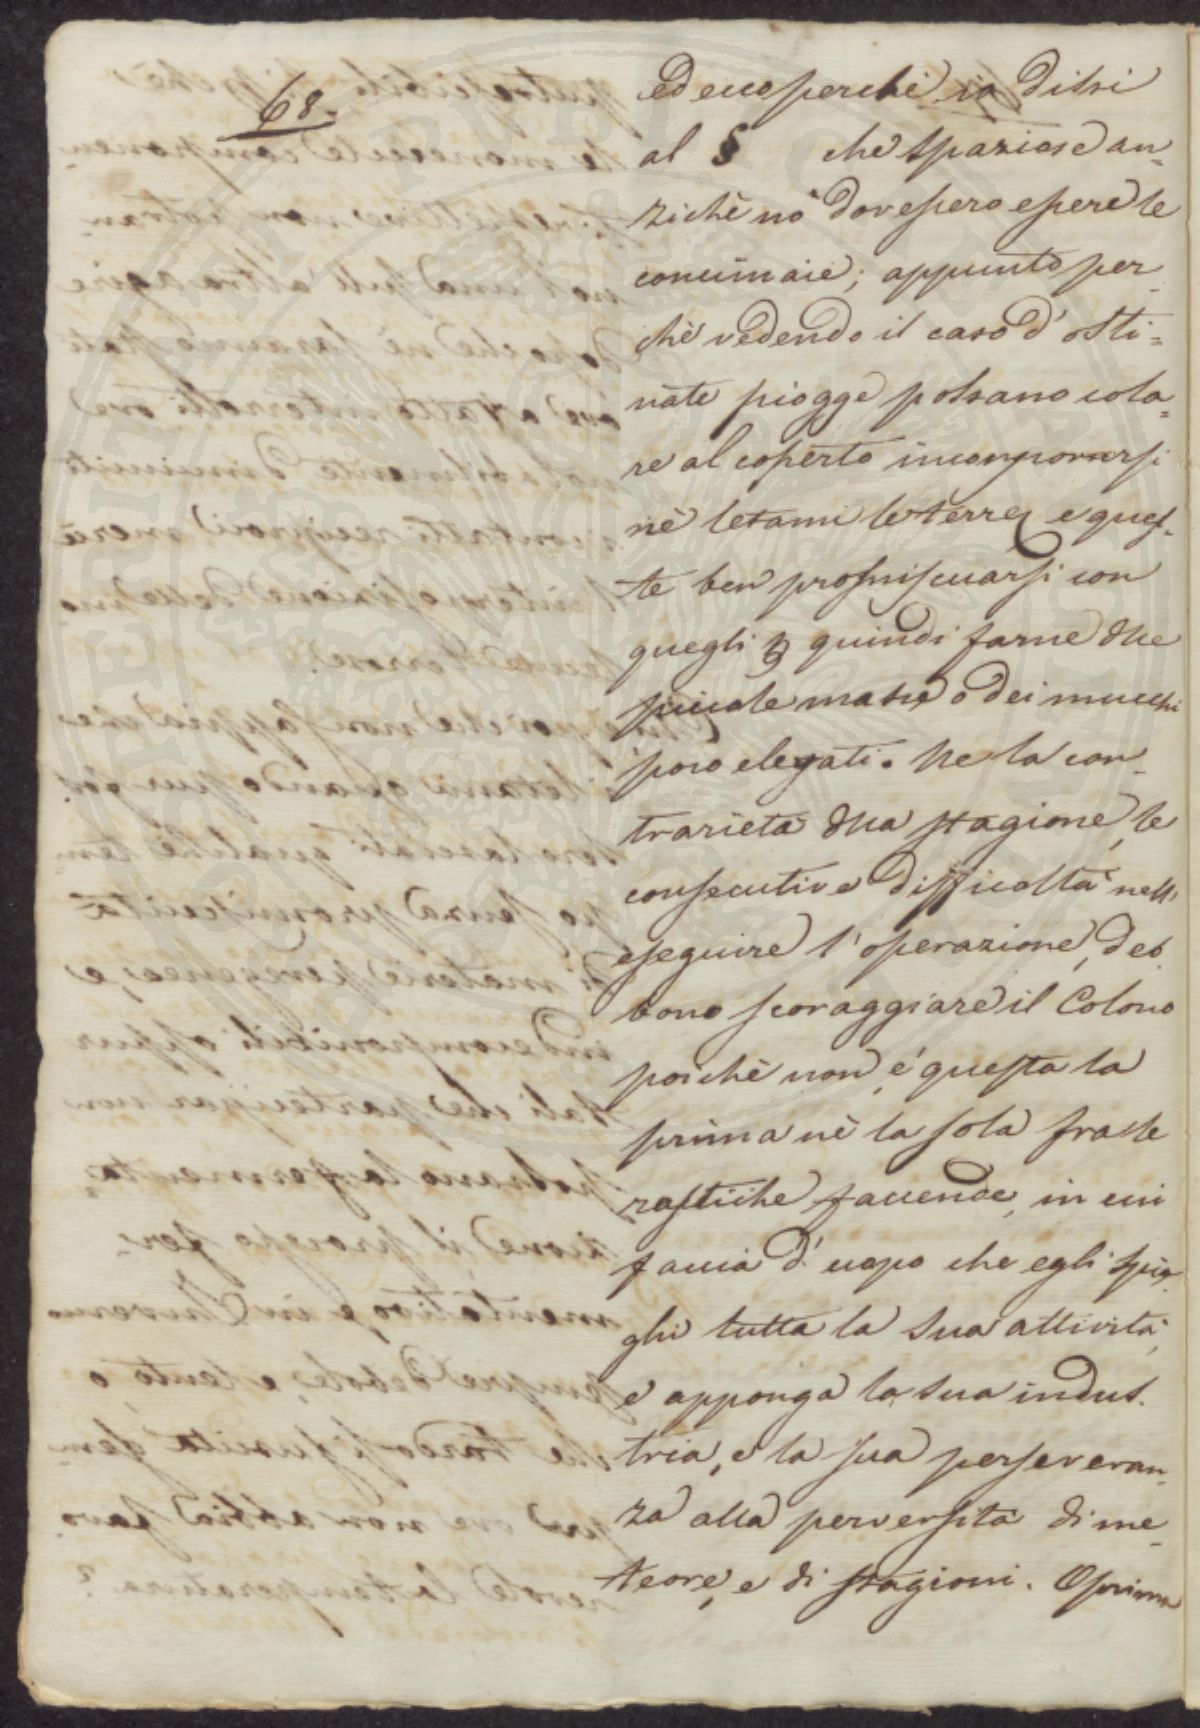 68.
ed ecco perchè io dissi
al § che spaziose an=
zichè nò dovessero essere le
concimaie; appunto per-
chè vedendo il caso d'osti=
nate piogge possano cola=
re al coperto incorporarsi
nè letami le terre, e ques-
te ben promiscuarsi con
quegli, quindi farne due
piccole masse o dei mucchi
poco elegati. Ne la con-
trarietà della stagione, le
consecutive difficoltà nell'
eseguire l'operazione, deb
bono scoraggiare il Colono
poichè non è questa la
prima nè la sola fra le
rustiche faccende, in cui
faccia d'uopo che egli spie-
ghi tutta la sua attività,
e apponga la sua indus.
tria, e la sua perseveran-
za alla perversità di me-
teore, e di stagioni. O prima